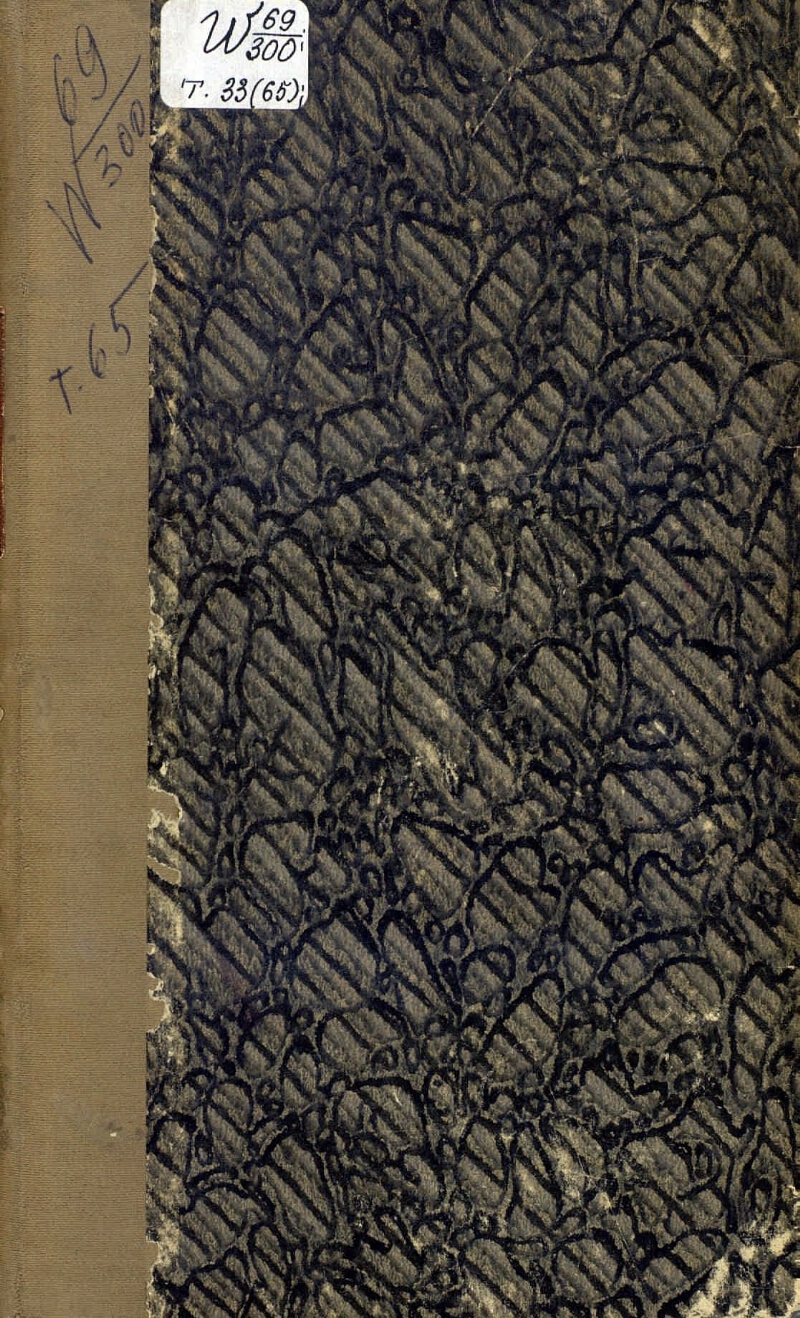 W 69/300
Т. 33(65);
W 69/300
т. 65